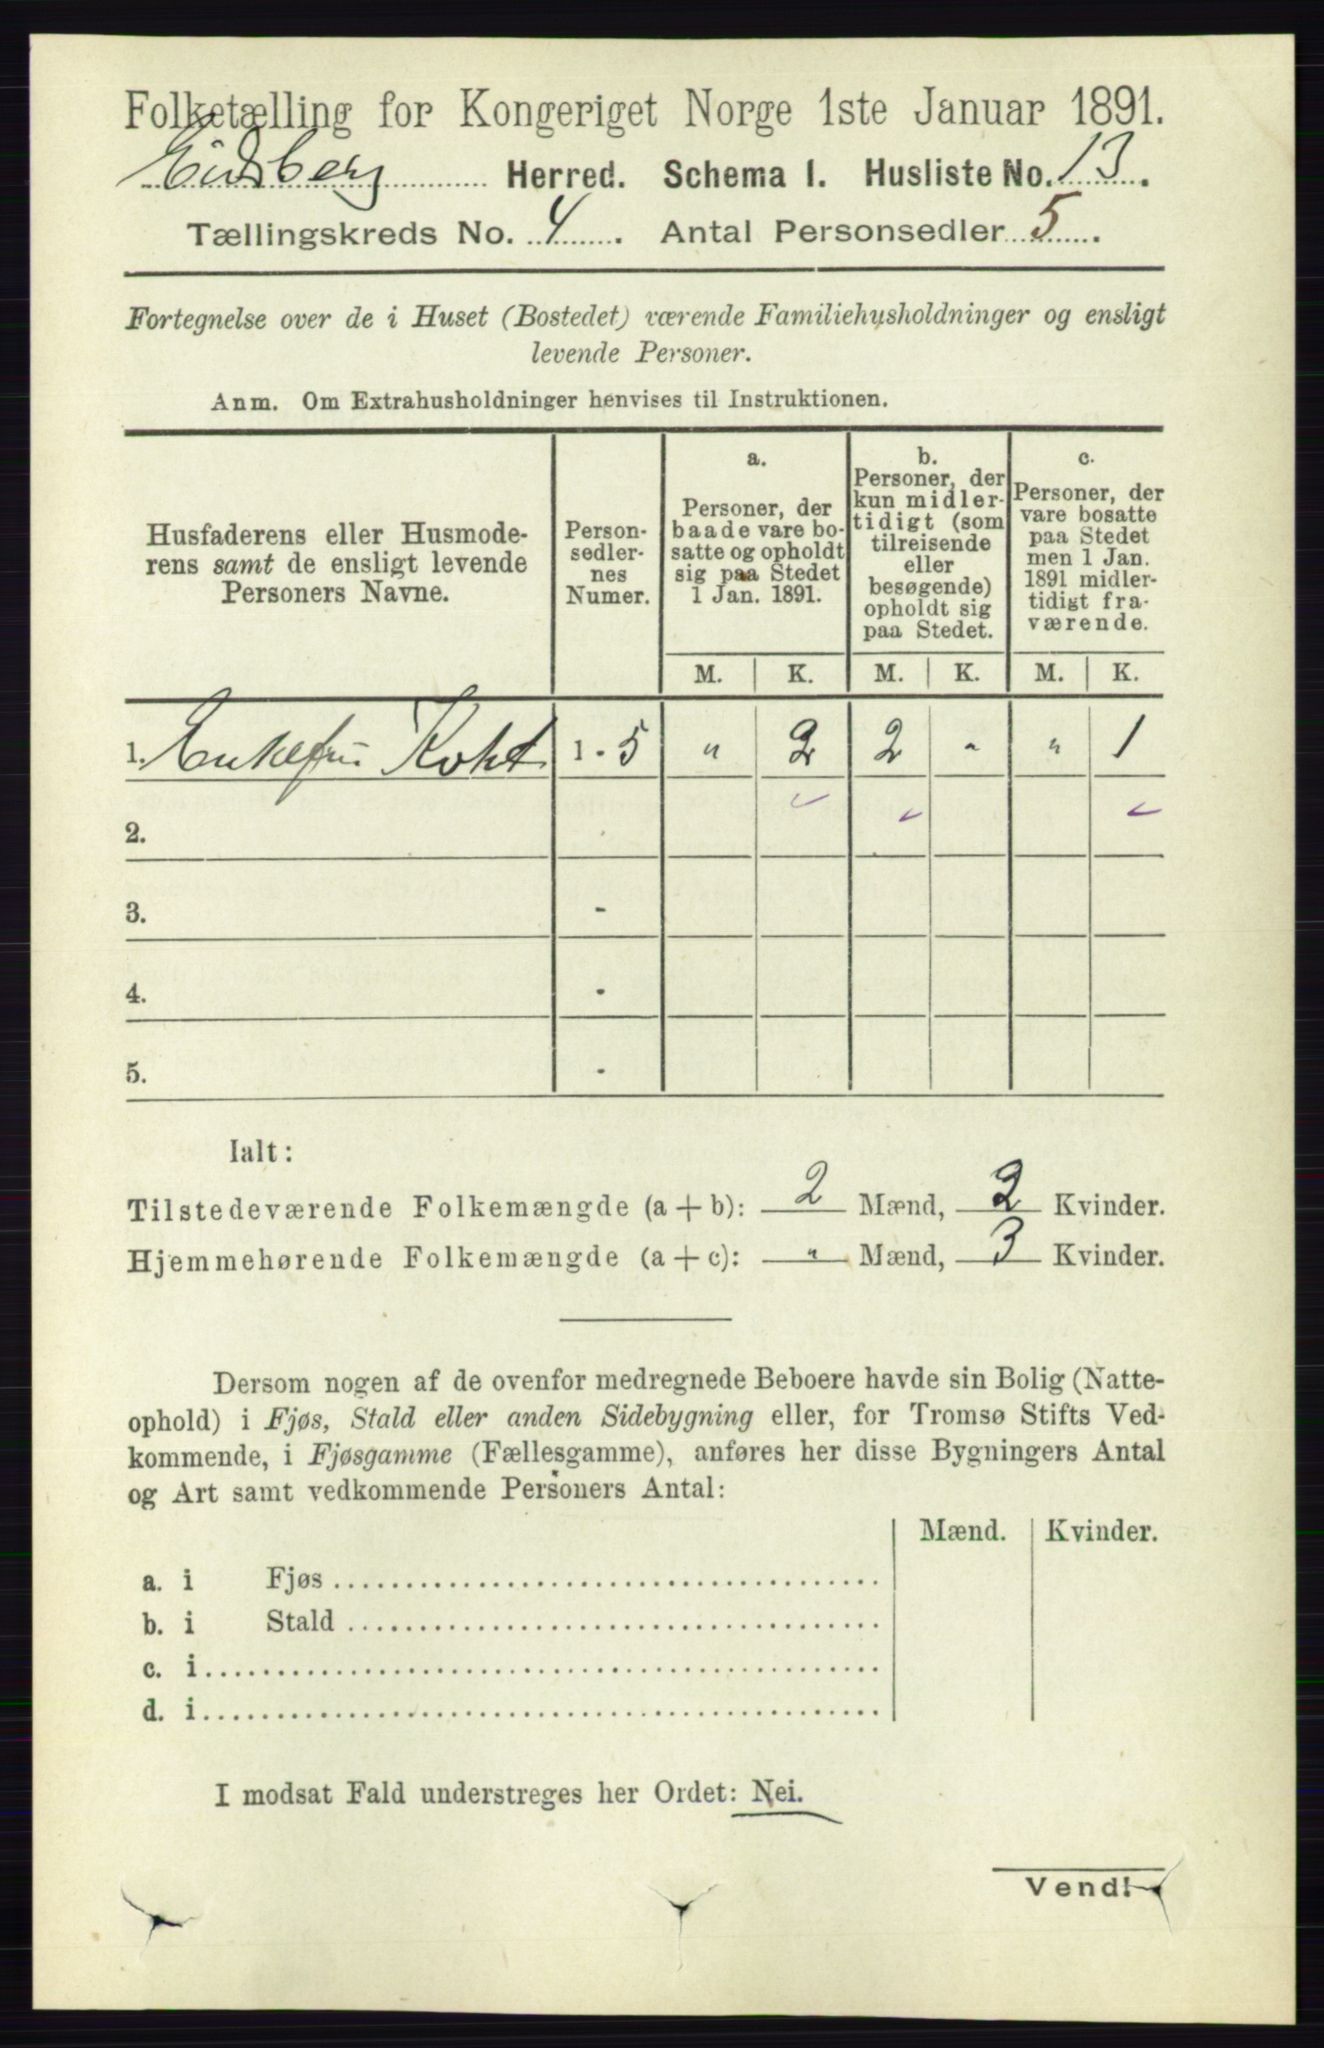 Folketælling for Kongeriget Norge 1ste Januar 1891.
Eidsberg Herred. Schema I. Husliste No. 13.
Tællingskreds No. 4. Antal Personsedler 5.
Fortegnelse over de i Huset (Bostedet) værende Familiehusholdninger og ensligt
levende Personer.
Anm. Om Extrahusholdninger henvises til Instruktionen.
Husfaderens eller Husmode-
rens samt de ensligt levende
Personers Navne.
Person-
sedler-
nes
Numer.
a.
Personer, der
baade vare bo-
satte og opholdt
sig paa Stedet
1 Jan. 1891.
b.
Personer, der
kun midler-
tidigt (som
tilreisende
eller
besøgende)
opholdt sig
paa Stedet.
c.
Personer, der
vare bosatte
paa Stedet
men 1 Jan.
1891 midler-
tidigt fra-
værende.
M. K. M. K. M. K.
1. Enkefru Koht 1 - 5 " 2 2 " " 1
2.
3. -
4. -
5. -
Ialt:
Tilstedeværende Folkemængde (a + b): 2 Mænd, 2 Kvinder.
Hjemmehørende Folkemængde (a + c): " Mænd, 3 Kvinder.
Dersom nogen af de ovenfor medregnede Beboere havde sin Bolig (Natte-
ophold) i Fjøs, Stald eller anden Sidebygning eller, for Tromsø Stifts Ved-
kommende, i Fjøsgamme (Fællesgamme), anføres her disse Bygningers Antal
og Art samt vedkommende Personers Antal:
Mænd. Kvinder.
a. i Fjøs
b. i Stald
c. i
d. i
I modsat Fald understreges her Ordet: Nei.
Vend!